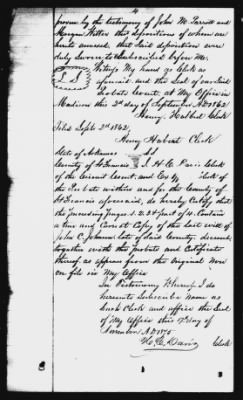 4
proven by the testimony of John M. Parrott and
Morgan Witter the depositions of whom are
hereto annexed, that said depositions were
duly sworn to & subscribed before me.
Witness My hand as Clerk as
aforesaid and the Seal of our said
Probate Court, at My office in
L S
Madison this 2d day of September A.D. 1862
Henry Halbert Clerk
Filed Sept. 2nd 1862
Henry Halbert Clerk
State of Arkansas } SS
County of St Francis } I, H. C. Davis Clerk
of the Circuit Court, and Ex
Clerk
of the Probate within and for the County of
St Francis aforesaid, do hereby Certify that
the preceding Pages 1. 2. 3 & part of 4. Contain
a true and Correct Copy of the last will of
John C. Johnson late of said County, deceased
together with the probate and Certificate
thereof, as appears from the Original now
on file in My Office
In Testimony Whereof I do
hereunto Subscribe name as
such Clerk and affix the Seal
of My Office this day of
November A.D. 1875
H. C. Davis Clerk